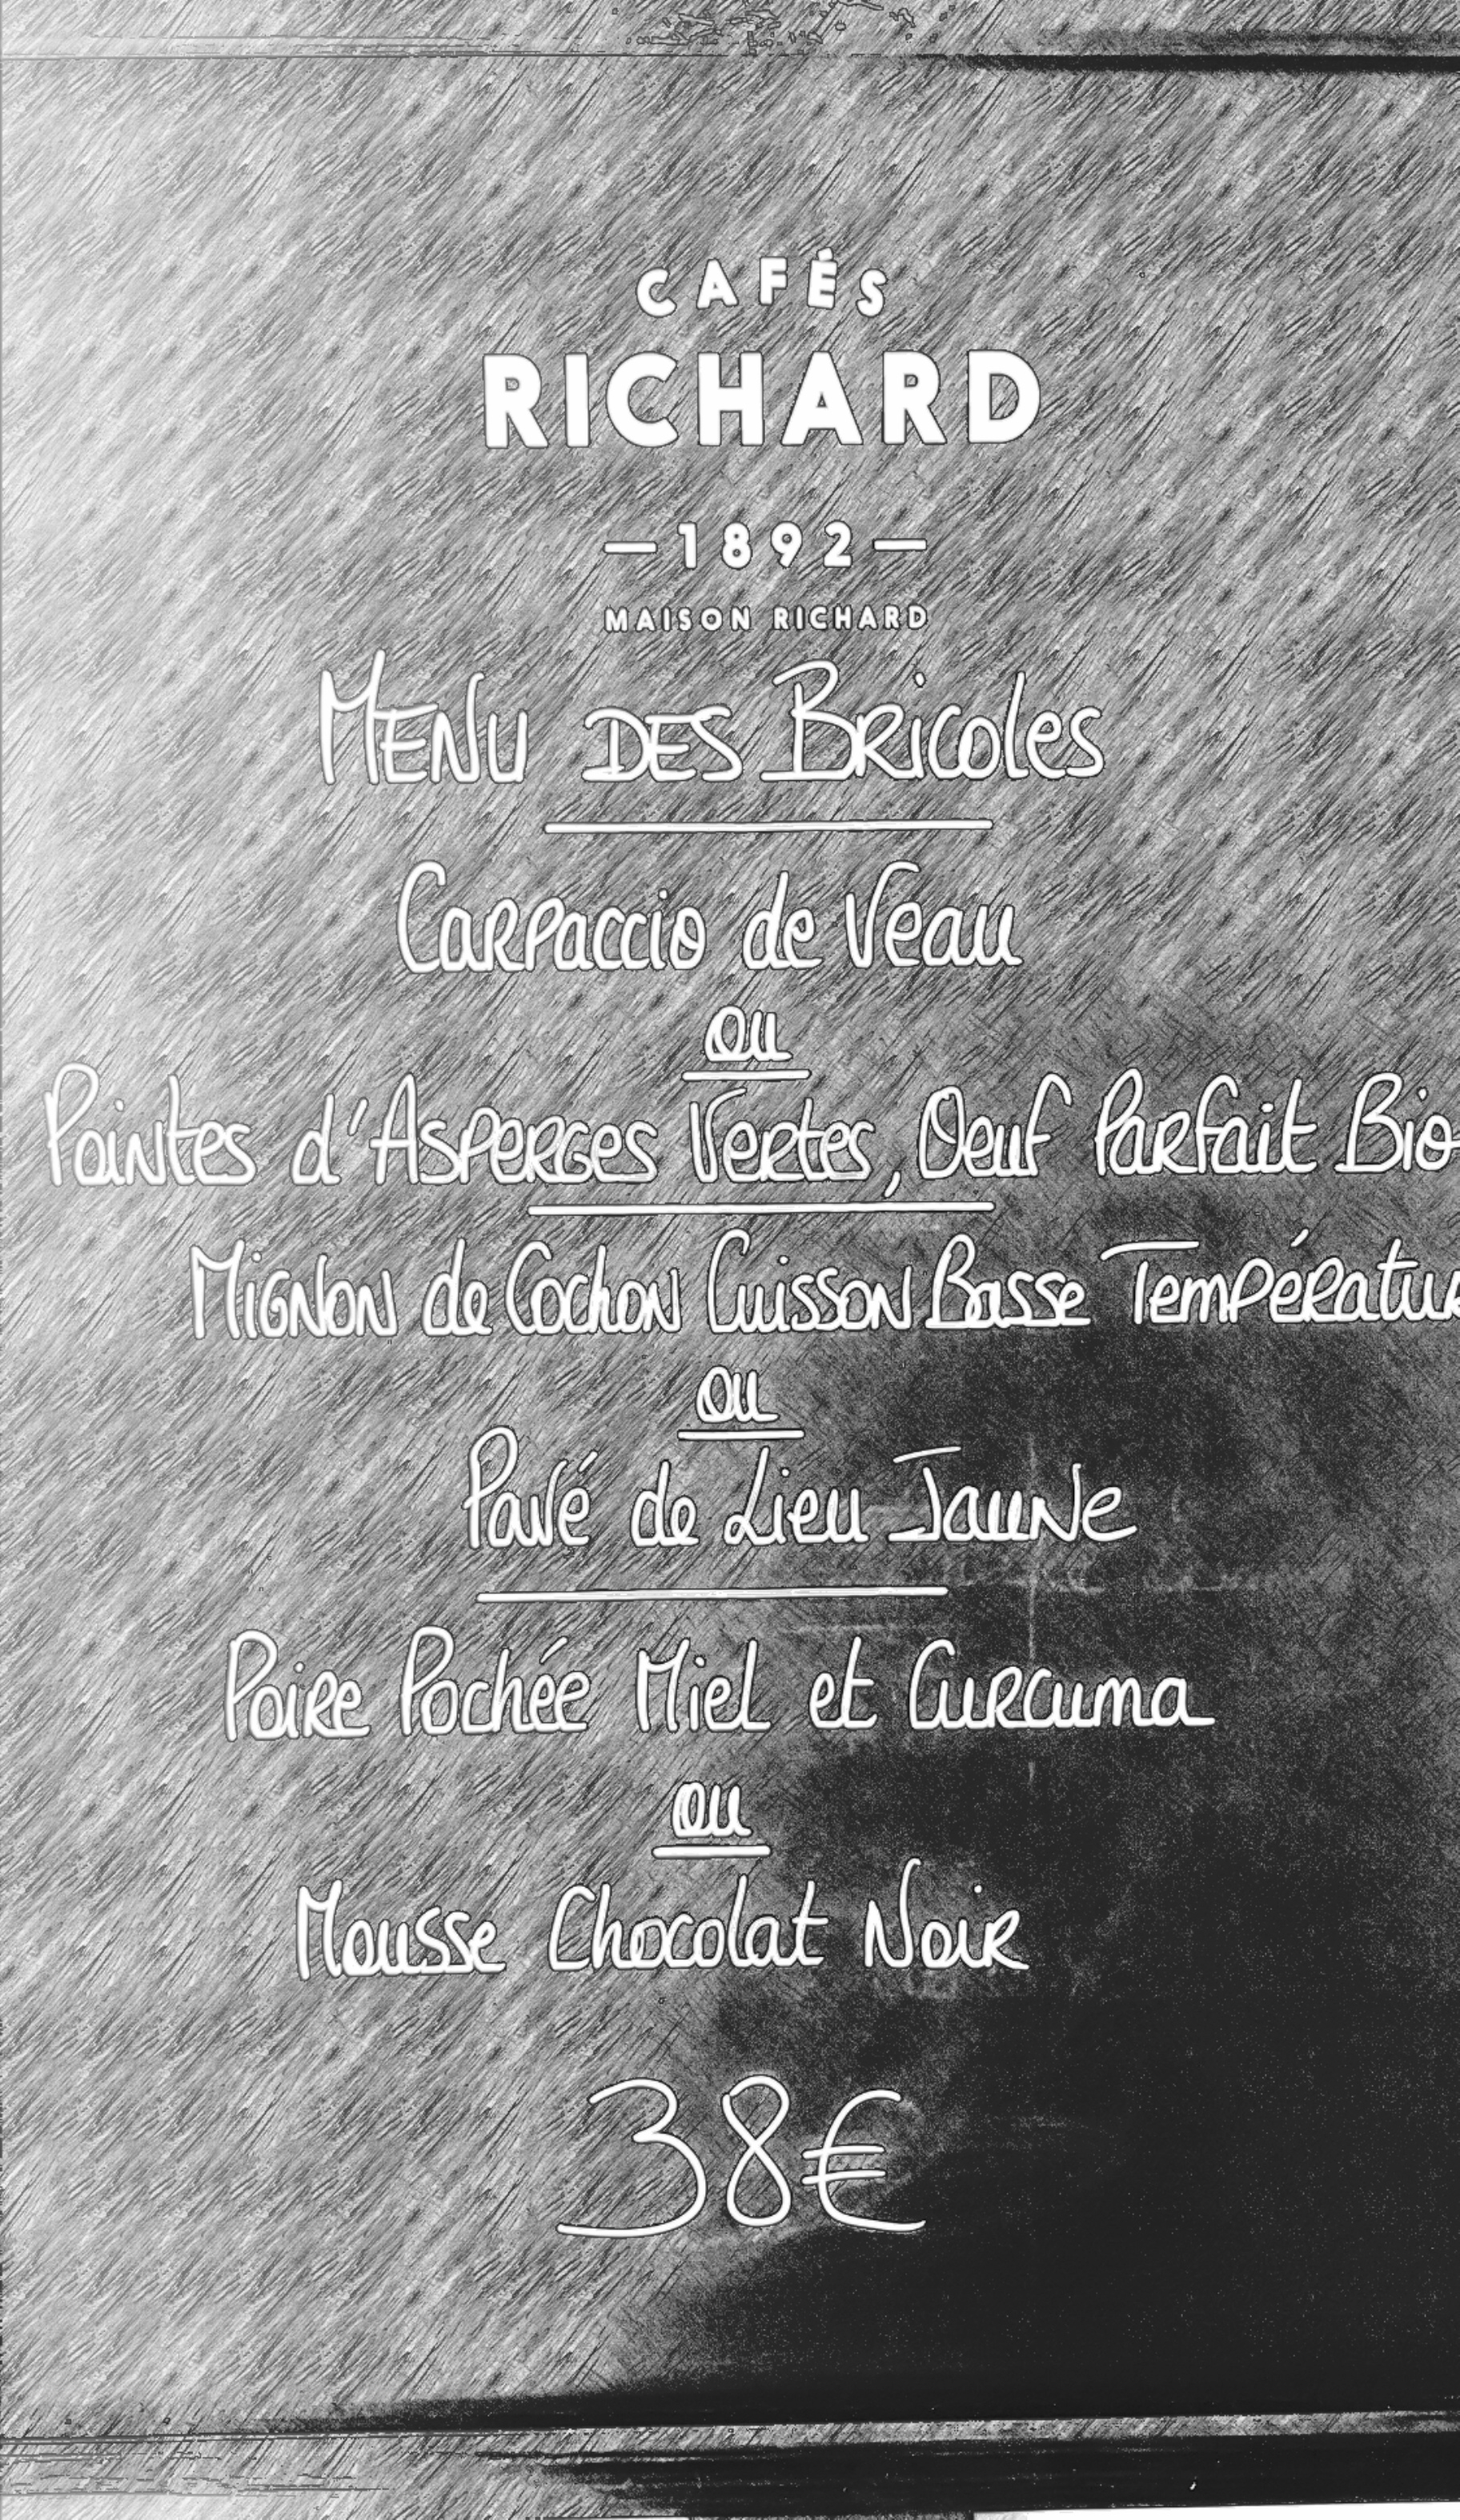 CAFÉS
RICHARD
— 1892 —
MAISON RICHARD
MENU DES BRicoles
CARPaccio de Veau
ou
Pointes d'ASPERGES VeRtes, Oeuf PaRfait Bio
MiGNoN de CochoN CuissoN Basse TempéRatuR
ou
Pavé de Lieu JauNe
PoiRe Pochée Miel et CuRcuma
ou
Mousse Chocolat NoiR
38€